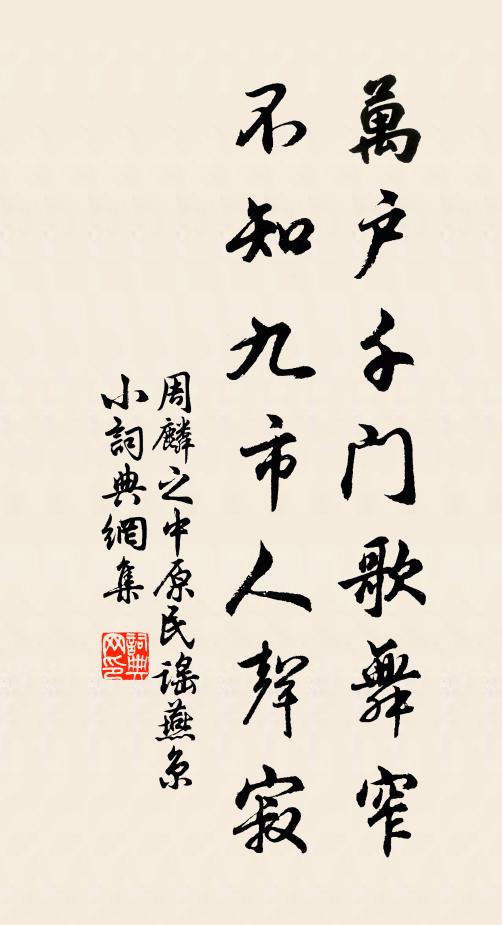 萬户千门歌舞窄
不知九市人聲寂
周麟之中原民謠燕京
小詞典網集
詞典網印